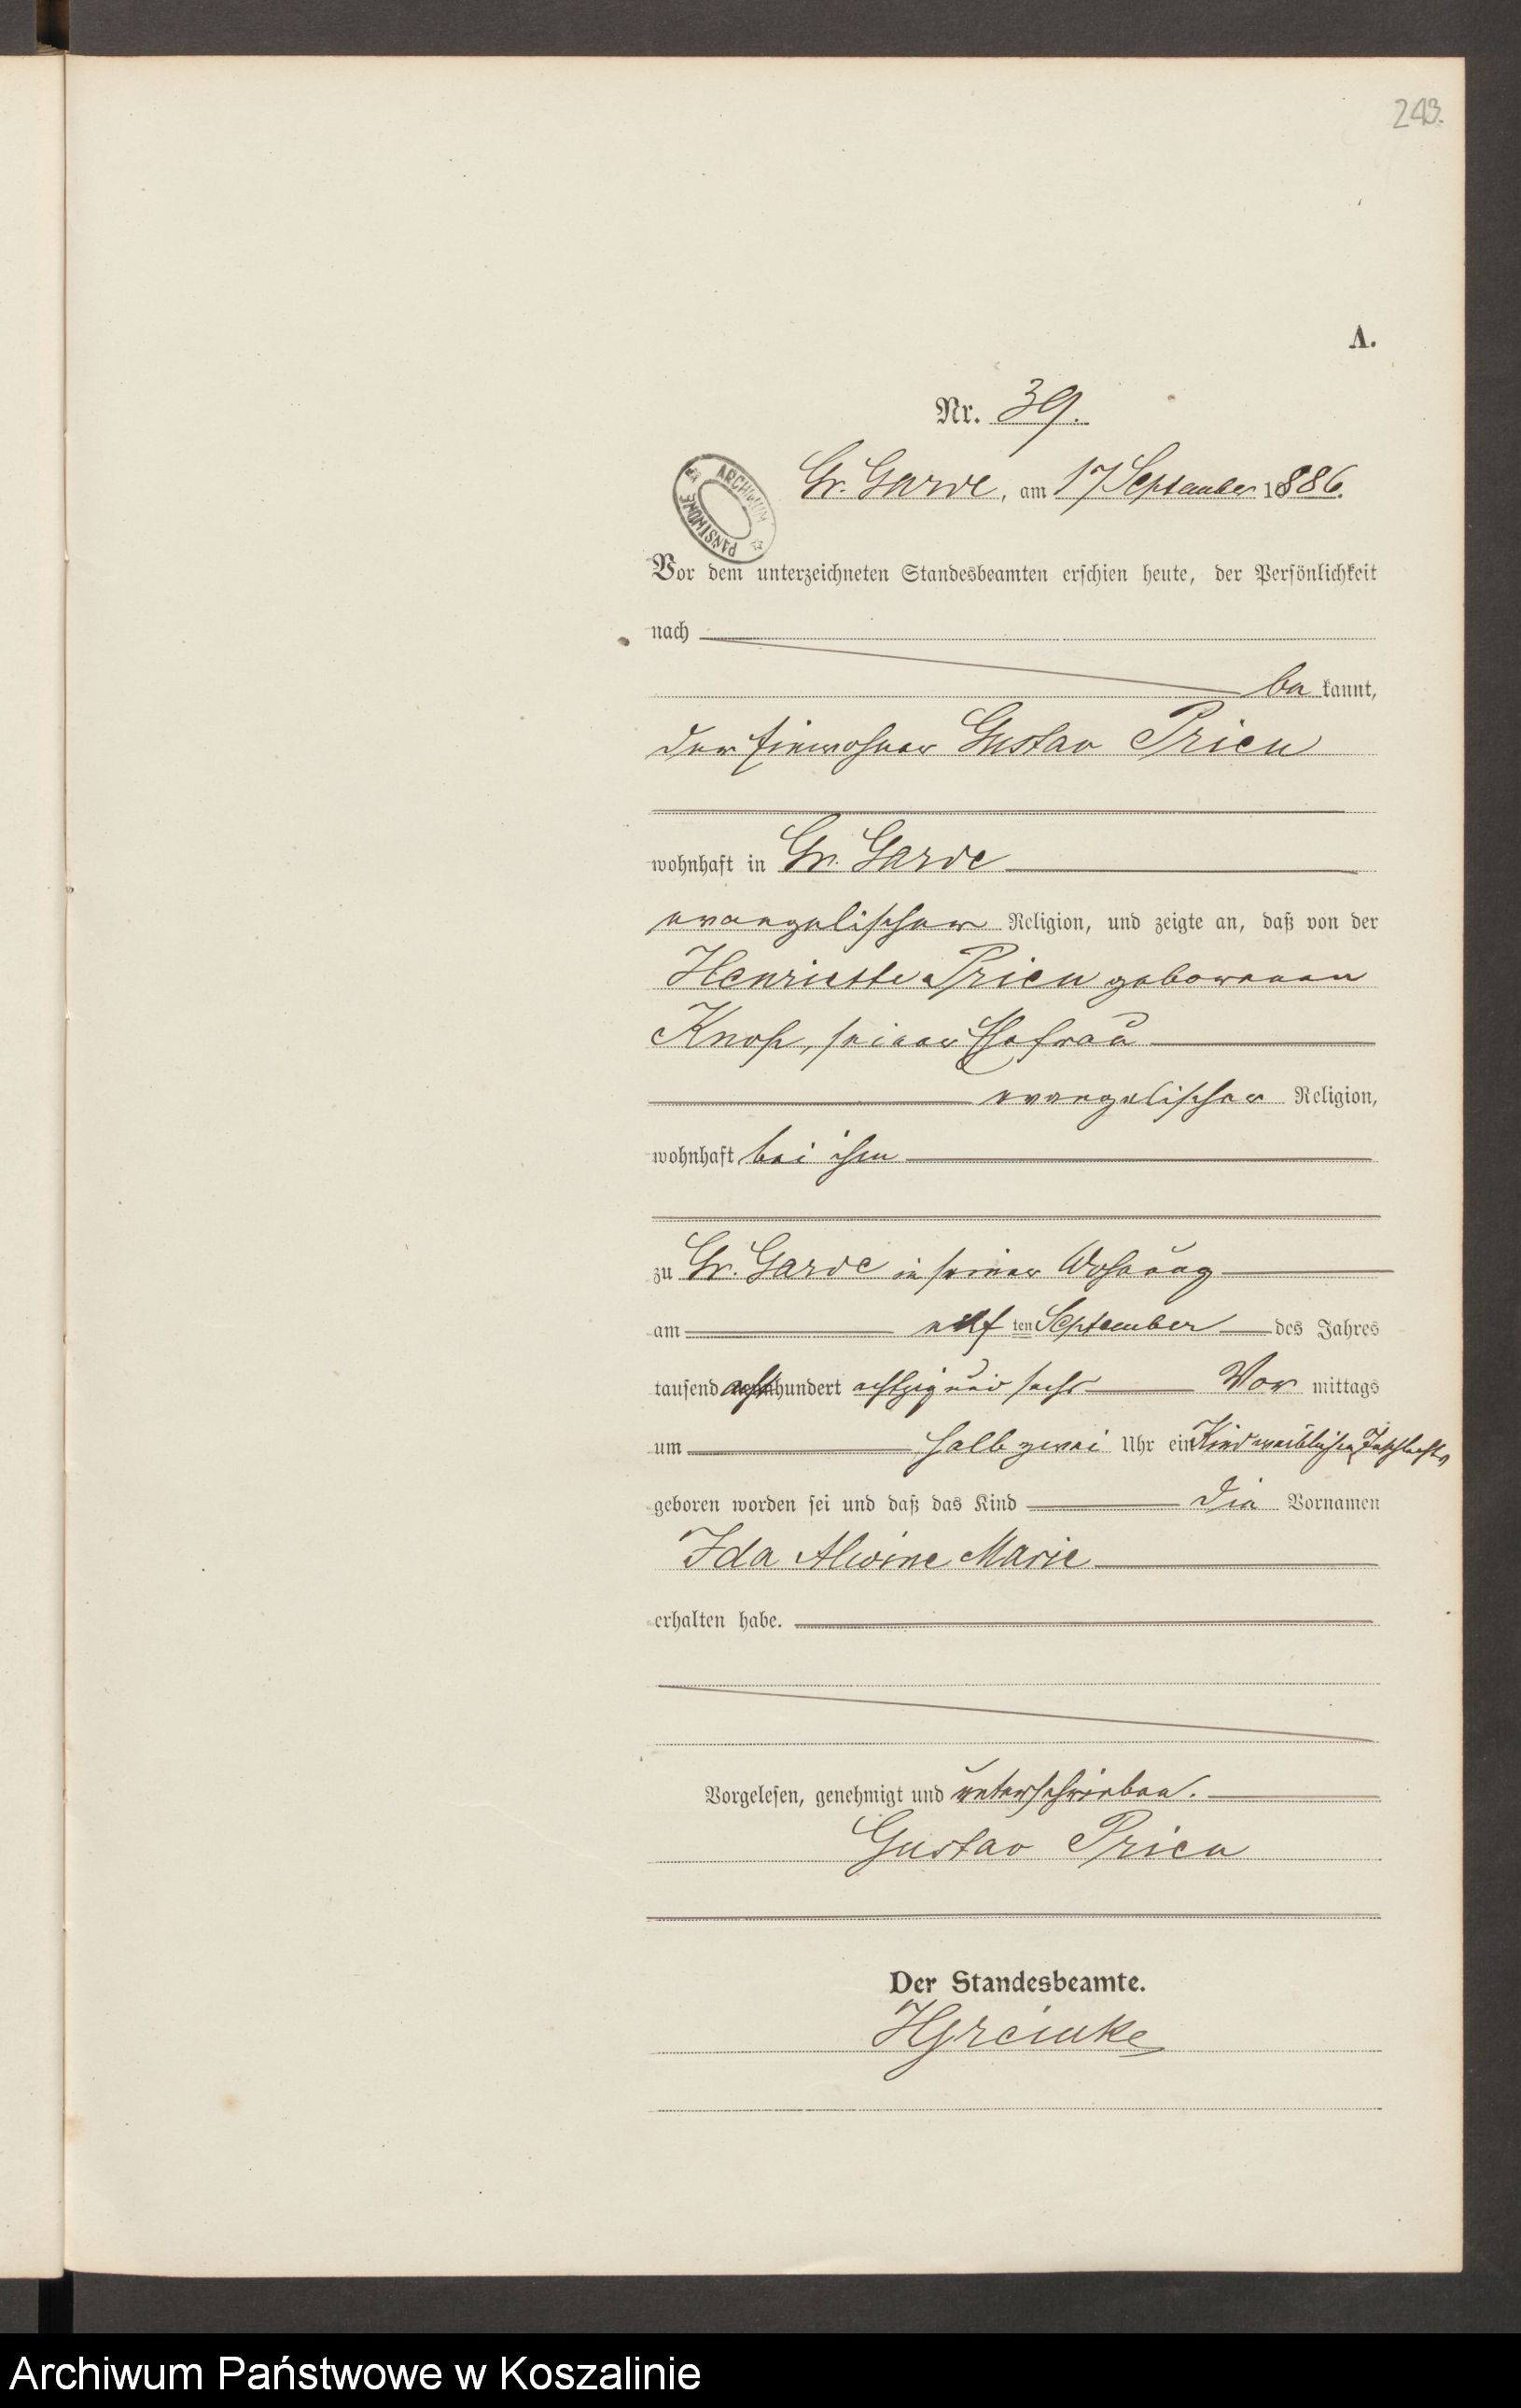 243.
A.
Nr. 39.
ARCHIWUM PAŃSTWOWE
Gr. Garde, am 17 September 1886.
Vor dem unterzeichneten Standesbeamten erschien heute, der Persönlichkeit
nach
be kannt,
der Einwohner Gustav Prien
wohnhaft in Gr. Garde
evangelischer Religion, und zeigte an, daß von der
Henriette Prien geborenen
Knop, seiner Ehefrau
evangelischer Religion,
wohnhaft bei ihm
zu Gr. Garde in seiner Wohnung
am elf ten September des Jahres
tausend acht hundert achtzig und sechs Vor mittags
um halb zwei Uhr ein Kind weiblichen Geschlechts
geboren worden sei und daß das Kind die Vornamen
Ida Alwine Marie
erhalten habe.
Vorgelesen, genehmigt und unterschrieben.
Gustav Prien
Der Standesbeamte.
Archiwum Państwowe w Koszalinie